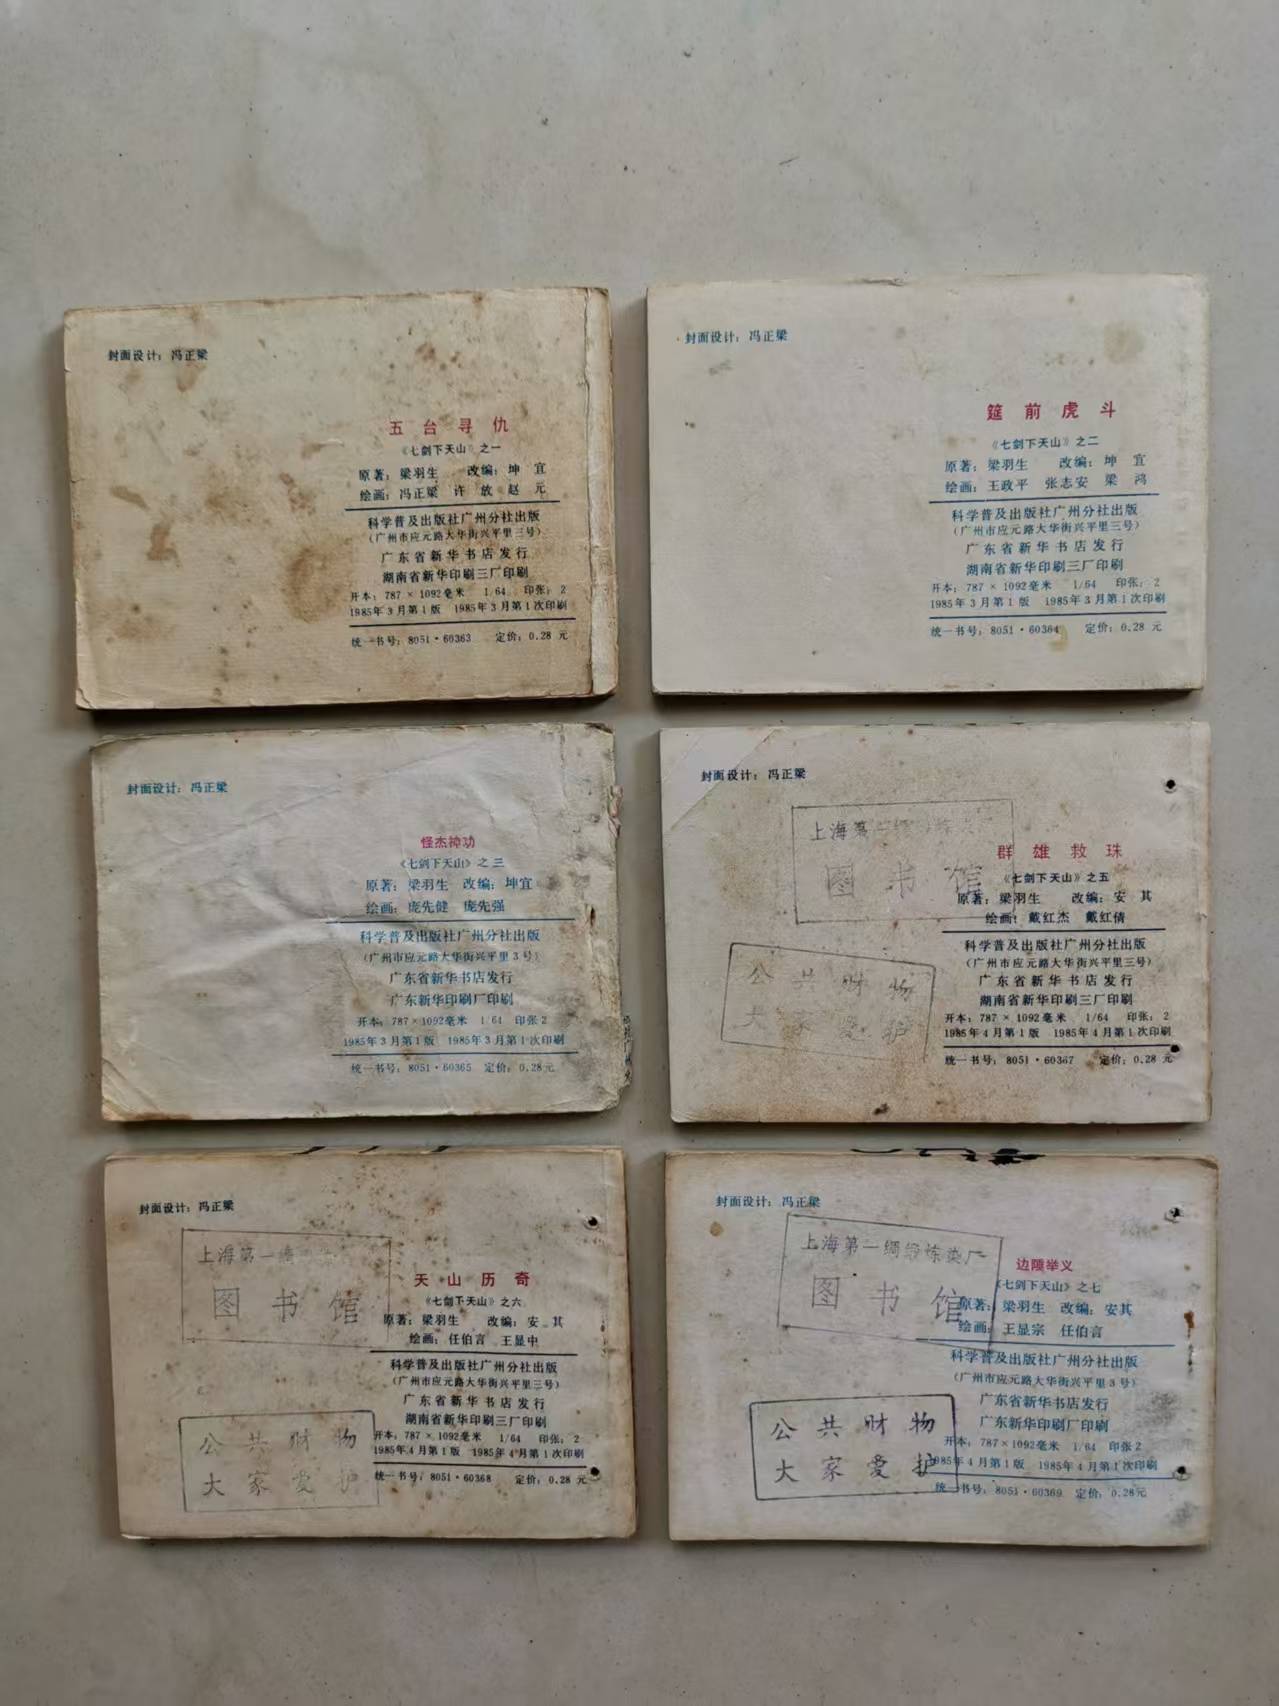 封面设计：冯正梁
五台寻仇
《七剑下天山》之一
原著：梁羽生 改编：坤宜
绘画：冯正梁 许放 赵元
科学普及出版社广州分社出版
（广州市应元路大华街兴平里三号）
广东省新华书店发行
湖南省新华印刷三厂印刷
开本：787×1092毫米 1/64 印张：2
1985年3月第1版 1985年3月第1次印刷
统一书号：8051·60363 定价：0.28元
封面设计：冯正梁
筵前虎斗
《七剑下天山》之二
原著：梁羽生 改编：坤宜
绘画：王政平 张志安 梁鸿
科学普及出版社广州分社出版
（广州市应元路大华街兴平里三号）
广东省新华书店发行
湖南省新华印刷三厂印刷
开本：787×1092毫米 1/64 印张：2
1985年3月第1版 1985年3月第1次印刷
统一书号：8051·60364 定价：0.28元
封面设计：冯正梁
怪杰神功
《七剑下天山》之三
原著：梁羽生 改编：坤宜
绘画：庞先健 庞先强
科学普及出版社广州分社出版
（广州市应元路大华街兴平里3号）
广东省新华书店发行
广东新华印刷厂印刷
开本：787×1092毫米 1/64 印张2
1985年3月第1版 1985年3月第1次印刷
统一书号：8051·60365 定价：0.28元
封面设计：冯正梁
上海第
图书馆
公共财物
大家爱护
群雄救珠
《七剑下天山》之五
原著：梁羽生 改编：安其
绘画：戴红杰 戴红倩
科学普及出版社广州分社出版
（广州市应元路大华街兴平里三号）
广东省新华书店发行
湖南省新华印刷三厂印刷
开本：787×1092毫米 1/64 印张：2
1985年4月第1版 1985年4月第1次印刷
统一书号：8051·60367 定价：0.28元
封面设计：冯正梁
上海第一
图书馆
公共财物
大家爱护
天山历奇
《七剑下天山》之六
原著：梁羽生 改编：安其
绘画：任伯言 王显中
科学普及出版社广州分社出版
（广州市应元路大华街兴平里三号）
广东省新华书店发行
湖南省新华印刷三厂印刷
开本：787×1092毫米 1/64 印张：2
1985年4月第1版 1985年4月第1次印刷
统一书号：8051·60368 定价：0.28元
封面设计：冯正梁
上海第一绸缎炼染厂
图书馆
公共财物
大家爱护
边陲举义
《七剑下天山》之七
原著：梁羽生 改编：安其
绘画：王显宗 任伯言
科学普及出版社广州分社出版
（广州市应元路大华街兴平里3号）
广东省新华书店发行
广东新华印刷厂印刷
开本：787×1092毫米 1/64 印张2
1985年4月第1版 1985年4月第1次印刷
统一书号：8051·60369 定价：0.28元